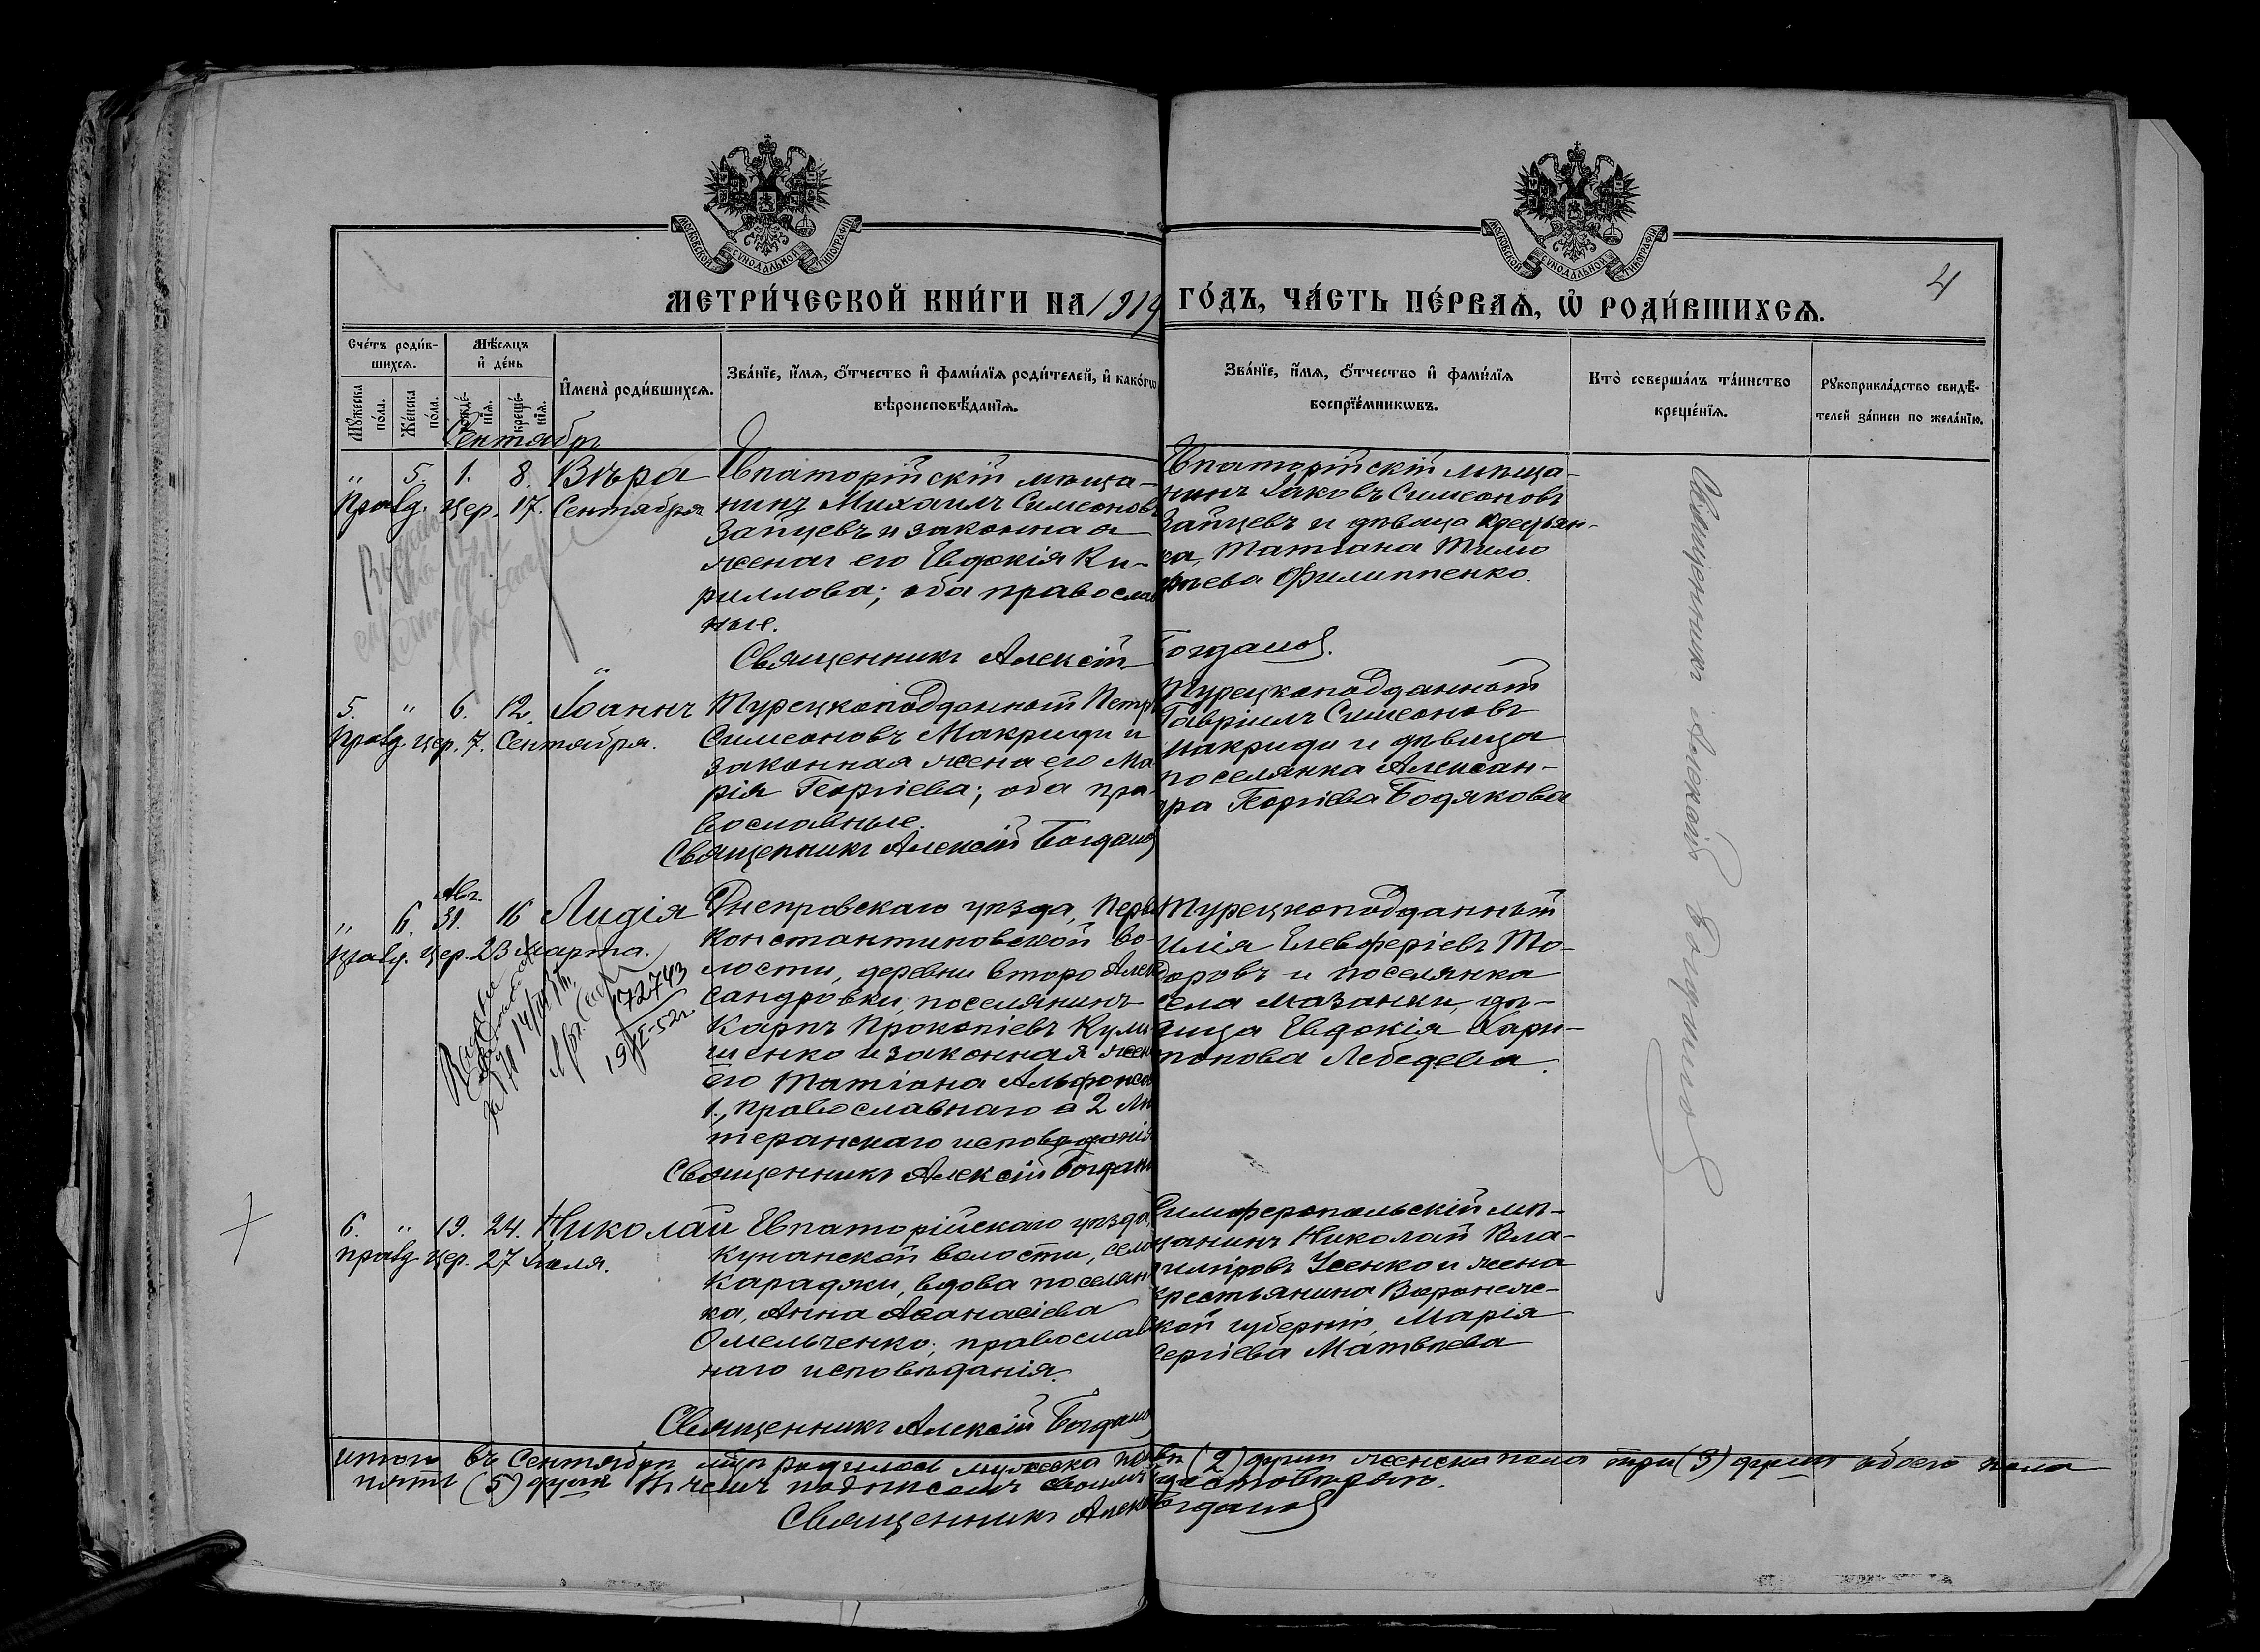 МОСКОВСКОЙ СѴНОДАЛЬНОЙ ТИПОГРАФІИ
МОСКОВСКОЙ СѴНОДАЛЬНОЙ ТИПОГРАФІИ
4
МЕТРИ́ЧЕСКОЙ КНИ́ГИ НА 1919 ГО́ДЪ, ЧА́СТЬ ПЕ́РВАѦ, Ѡ҆ РОДИ́ВШИХСѦ.
Сче́тъ роди́в-
шихсѧ.
Мѣ́сѧцъ
и҆ де́нь
Мꙋ́жеска по́ла.
Же́нска по́ла.
рожде́-
нїѧ.
креще́-
нїѧ.
И҆мена̀ роди́вшихсѧ.
Зва́нїе, и҆́мѧ, ѻ҆́тчество и҆ фами́лїѧ роди́телей, и҆ како́гѡ
вѣроисповѣ́данїѧ.
Зва́нїе, и҆́мѧ, ѻ҆́тчество и҆ фами́лїѧ
воспрїе́мникѡвъ.
Кто̀ соверша́лъ та́инство
креще́нїѧ.
Рꙋкоприкла́дство свидѣ́-
телей за́писи по жела́нїю.
Сентябрь
" 5. 1. 8. Вѣра
Правд. цер. 17. Сентября
Евпаторійскій мѣща-
нинъ Михаилъ Симеоновъ
Зайцевъ и законная
жена его Евдокія Ки-
риллова; оба православ
ные.
Евпаторійскій мѣща-
нинъ Іаковъ Симеоновъ
Зайцевъ и дѣвица крестьян-
ка, Татіана Тимо
фѣева Филиппенко.
Священникъ Алексій Богданов.
5. " 6. 12. Іоаннъ
Правд. цер. 7. Сентября.
Турецкоподданный Петръ
Симеоновъ Макриди и
законная жена его Ма
рія Георгіева; оба пра-
вославные.
Священникъ Алексій Богданов
Турецкоподданный
Гавріилъ Симеоновъ
Макриди и дѣвица
поселянка Алексан-
дра Георгіева Бодякова
Авг.
" 6. 31. 16 Лидія
правд. цер. 23 Марта.
172743
Днепровскаго уѣзда, Перво
Константиновской во-
лости, деревни второ Алек
сандровки, поселянинъ
Карпъ Прокопіевъ Кули
шенко и законная жена
его Татіана Альфонсова
1., православнаго а 2 Лю
теранскаго исповѣданія
Священникъ Алексій Богданов
Турецкоподданный
Илія Елевферіевъ То-
доровъ и поселянка
села Мазанки, дѣ-
вица Евдокія Хари-
тонова Лебедева.
6. " 19. 24. Николай
правд. цер. 27 Іюля.
Евпаторійскаго уѣзда
Кунанской волости, села
Караджи, вдова поселян
ка, Анна Аѳанасіева
Омельченко; православ
наго исповѣданія.
Священникъ Алексій Богданов
Симферопольскій мѣ-
щанинъ Николай Вла-
диміровъ Усенко и жена
крестьянина Воронеж-
ской губерніи, Марія
Сергіева Матвѣева
Священникъ Алексій Богданов
Итого въ Сентябрѣ мцѣ родилось мужеска пола (2) души женска пола три (3) души обоего пола
пять (5) душъ Въ чемъ подписомъ своимъ удостовѣряю.
Священникъ Алексій Богданов